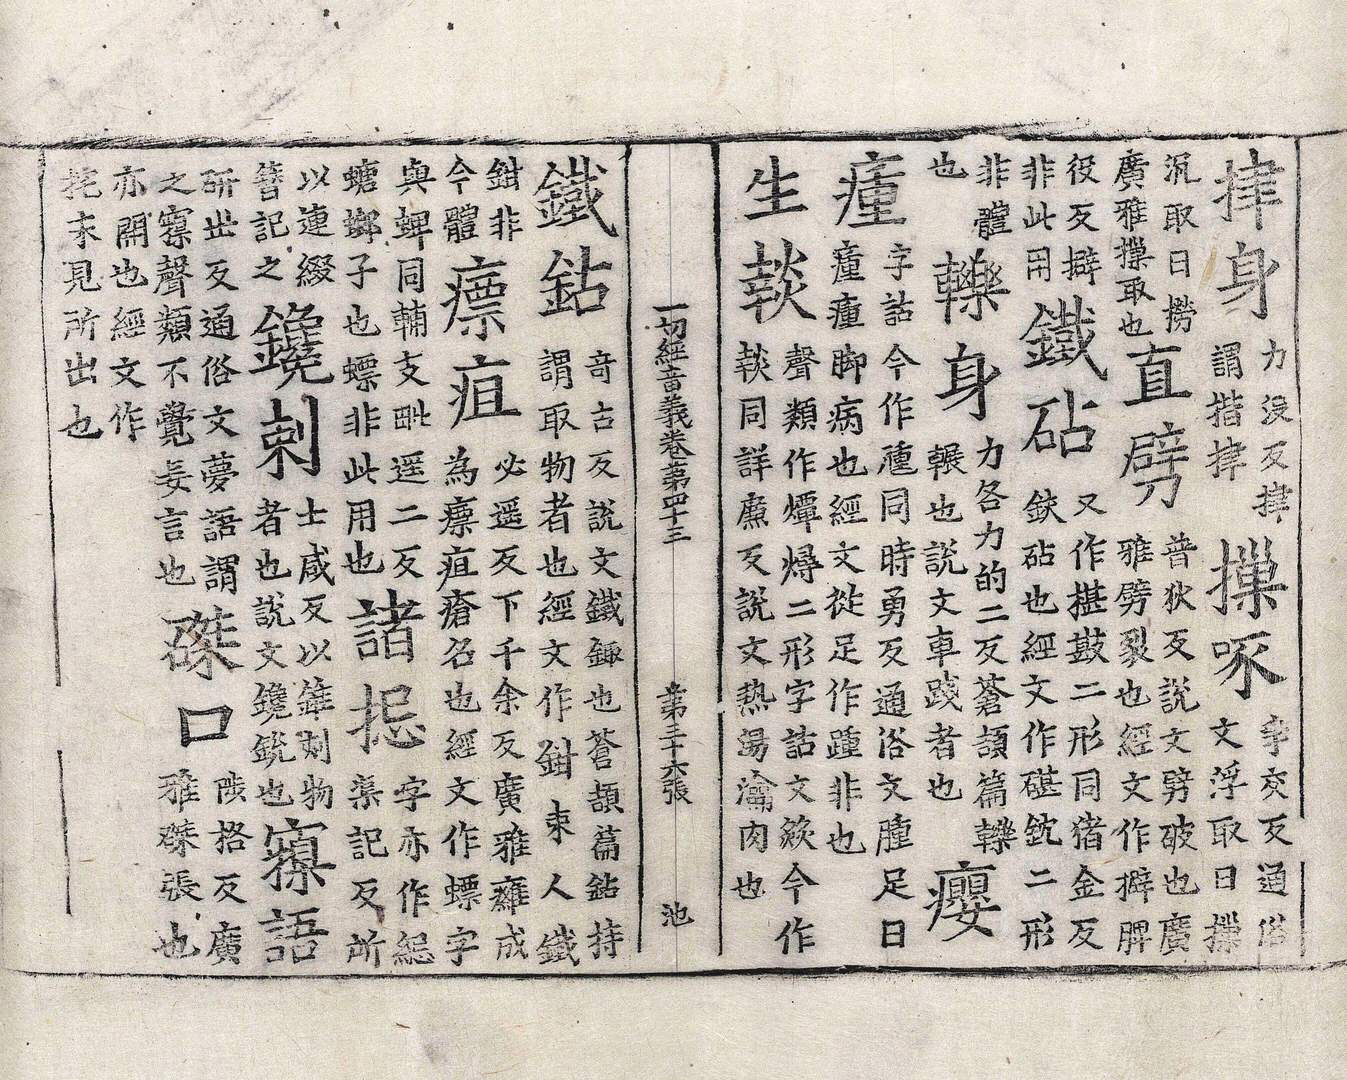 捋身
力没反捋
謂揩捋
摷啄
爭交反通俗
文浮取曰摷
沉取曰撈
廣雅摷取也
直劈
普狄反說文劈破也廣
雅劈裂也經文作擗脾
役反擗
非此用
鐵砧
又作椹㪛二形同猪金反
鈇砧也經文作碪鈂二形
非體
也
轢身
力各力的二反蒼頡篇轢
輾也說文車踐者也
癭
瘇
字詁今作同時勇反通俗文腫足曰
瘇瘇脚病也經文從足作踵非也
生㷋
聲類作燂燖二形字詁文欻今作
㷋同詳廉反說文熱湯瀹肉也
一切經音義卷第四十三
第三十六張
池
鐵鉆
奇古反說文鐵也蒼頡篇鉆持
謂取物者也經文作鉗束人鐵
鉗非
今體
瘭疽
必遥反下千余反廣雅癰成
為瘭疽瘡名也經文作螵字
與蜱同輔支毗遥二反
螗螂子也螵非此用也
諸
字亦作
渠記反所
以連綴
簪記之
鑱刺
士咸反以錐刺物
者也說文鑱銳也
寱語
研反通俗文夢語謂
之寱聲類不覺妄言也
磔口
陟格反廣
雅磔張也
亦開也經文作
挓未見所出也